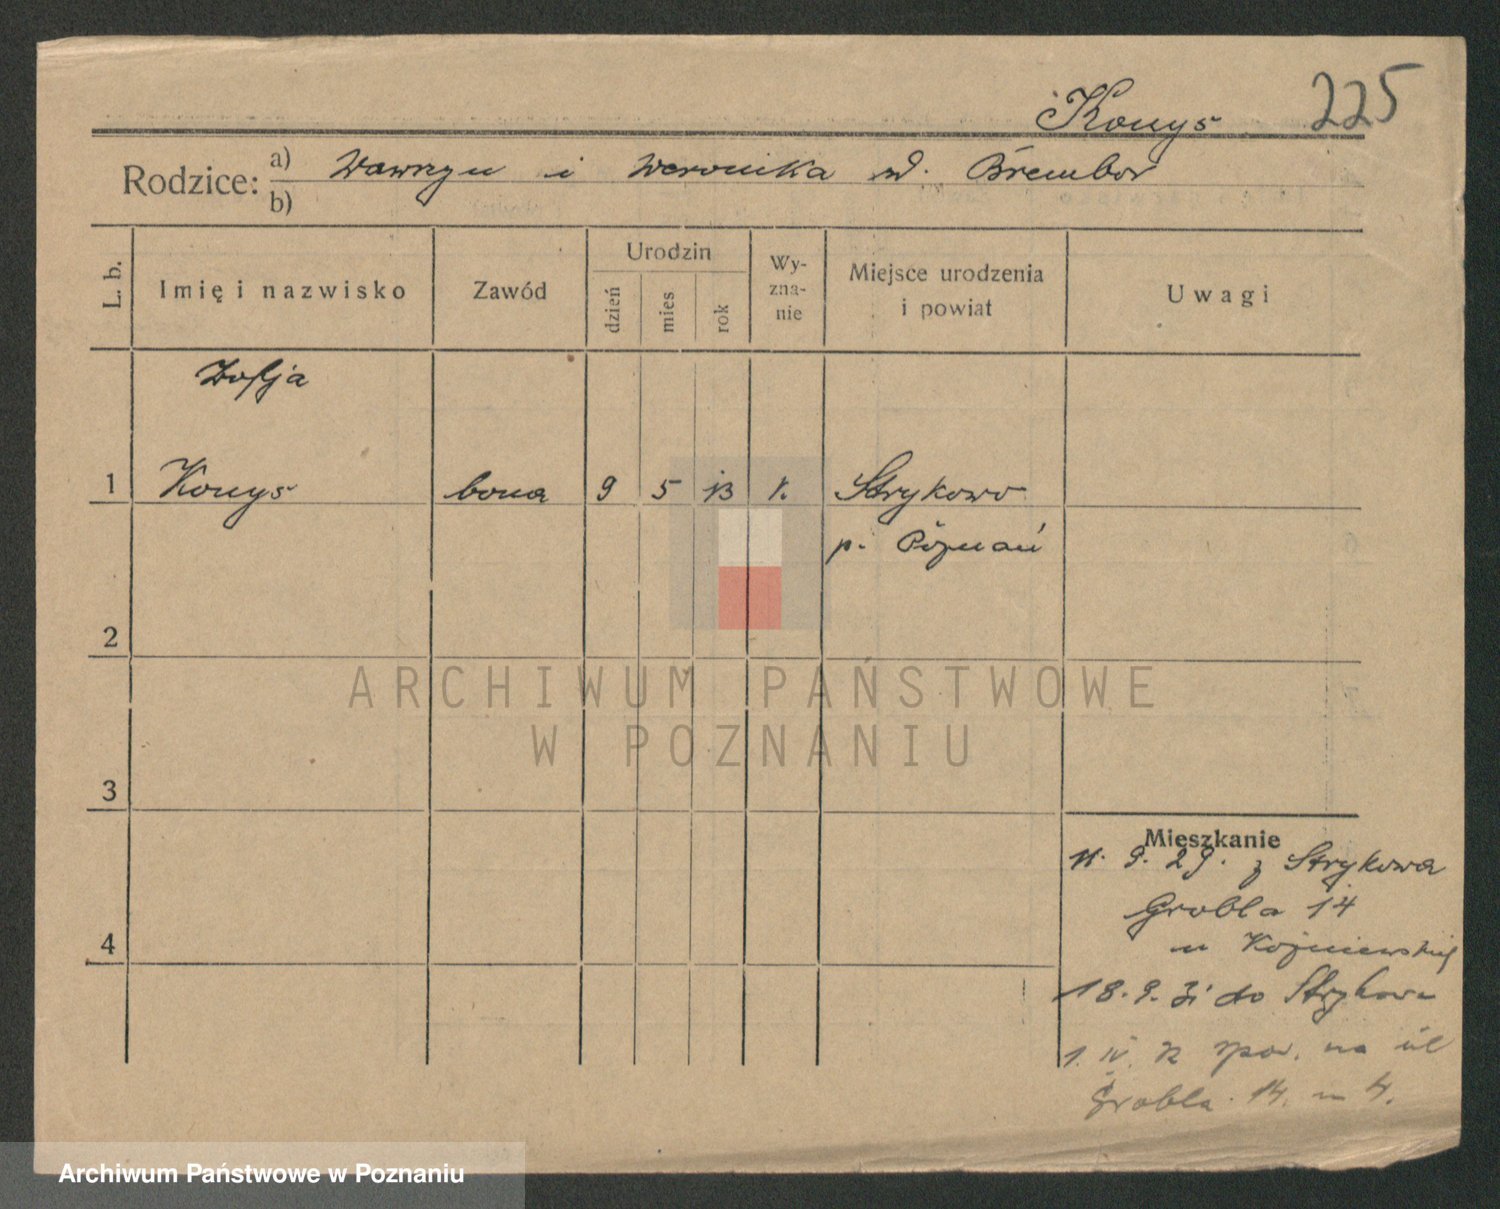 Konys 225
Rodzice: a) Wawrzyn i Weronika zd. Brembor
b)
L. b. Imię i nazwisko Zawód Urodzin dzień mies rok Wy-zna-nie Miejsce urodzenia i powiat Uwagi
Zofja
1 Konys bona 9 5 13 k. Strykowo
p. Poznań
2
ARCHIWUM PAŃSTWOWE
W POZNANIU
3
Mieszkanie
11. 9. 29. z Strykowa
Grobla 14
4
u Koźniewskiej
18. 9. 31 do Strykowa
1. IV. 32 spow. na ul
Grobla 14. m 4.
Archiwum Państwowe w Poznaniu